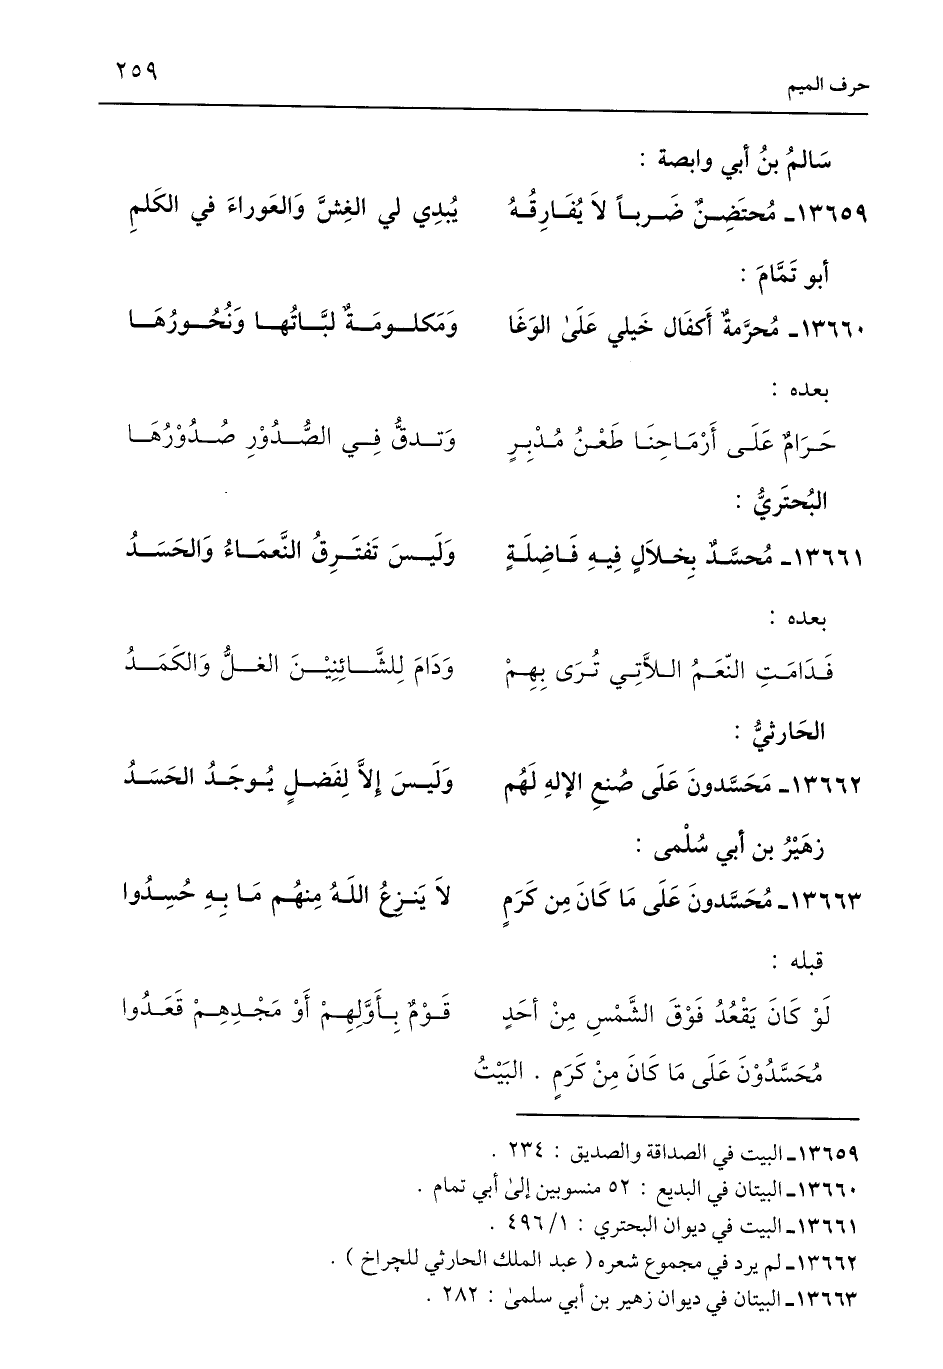 ٢٥٩
حرف الميم
سَالمُ بنُ أبي وابصة :
١٣٦٥٩ـ مُحتَضِـنٌ ضَـربـاً لاَ يُفَـارِقُـهُ يُبْدِي لي الغِشَّ وَالعَوراءَ في الكَلمِ
أبو تَمَّامَ :
١٣٦٦٠ـ مُحرَّمةٌ أَكفَال خَيلي عَلَىٰ الوَغَا وَمَكلـومَـةٌ لبَّـاتُهـا وَنُحُـورُهَـا
بعده :
حَـرَامٌ عَلَـى أَرْمَـاحِنَـا طَعْـنُ مُـدْبِـرٍ وَتـدقُّ فِـي الصُّـدُوْرِ صُـدُوْرُهَـا
البُحتَريُّ :
١٣٦٦١ـ مُحسَّـدٌ بِخـلاَلٍ فِيـهِ فَـاضِلَـةٍ وَلَيـسَ تَفتَـرِقُ النَّعمَـاءُ وَالحَسَـدُ
بعده :
فَـدَامَـتِ النِّعَـمُ الـلاَّتِـي تُـرَى بِهِـمْ وَدَامَ لِلشَّـائِنِيْـنَ الغـلُّ وَالكَمَـدُ
الحَارثيُّ :
١٣٦٦٢ـ مَحَسَّدونَ عَلَى صُنعِ الإلهِ لَهُم وَلَيـسَ إلاَّ لفَضـلٍ يُـوجَـدُ الحَسَـدُ
زهَيْرُ بن أبي سُلْمى :
١٣٦٦٣ـ مُحَسَّدونَ عَلَى مَا كَانَ مِن كَرَمٍ لاَ يَنـزِعُ اللَـهُ مِنهُـم مَـا بِـهِ حُسِـدُوا
قبله :
لَوْ كَانَ يَقْعُدُ فَوْقَ الشَّمْسِ مِنْ أحَدٍ قَـوْمٌ بِـأَوَّلِهِـمْ أَوْ مَجْـدِهِـمْ قَعَـدُوا
مُحَسَّدُوْنَ عَلَى مَا كَانَ مِنْ كَرَمٍ . البَيْتُ
١٣٦٥٩ـ البيت في الصداقة والصديق : ٢٣٤ .
١٣٦٦٠ـ البيتان في البديع : ٥٢ منسوبين إلىٰ أبي تمام .
١٣٦٦١ـ البيت في ديوان البحتري : ١/ ٤٩٦ .
١٣٦٦٢ـ لم يرد في مجموع شعره ( عبد الملك الحارثي للچراخ ) .
١٣٦٦٣ـ البيتان في ديوان زهير بن أبي سلمىٰ : ٢٨٢ .